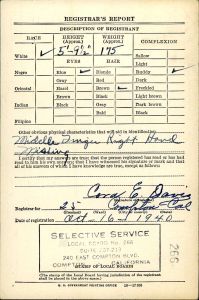 REGISTRAR'S REPORT
DESCRIPTION OF REGISTRANT
RACE
HEIGHT (Approx.)
WEIGHT (Approx.)
COMPLEXION
White ✓
5'-9½"
175
Sallow
EYES
HAIR
Light
Negro
Blue ✓
Blonde
Ruddy ✓
Gray
Red
Dark
Oriental
Hazel
Brown ✓
Freckled
Brown
Black
Light brown
Indian
Black
Gray
Dark brown
Bald
Black
Filipino
Other obvious physical characteristics that will aid in identification
Middle Finger Right Hand
Missing
I certify that my answers are true; that the person registered has read or has had read to him his own answers; that I have witnessed his signature or mark and that all of his answers of which I have knowledge are true, except as follows:
Cora E. Davis
Registrar for
25
Compton
Cal
Date of registration
Oct - 16 - 1940
SELECTIVE SERVICE
LOCAL BOARD NO. 266
240 EAST COMPTON BLVD.
COMPTON, CALIFORNIA
266
(STAMP OF LOCAL BOARD)
(The stamp of the Local Board having jurisdiction of the registrant shall be placed in the above space.)
U. S. GOVERNMENT PRINTING OFFICE